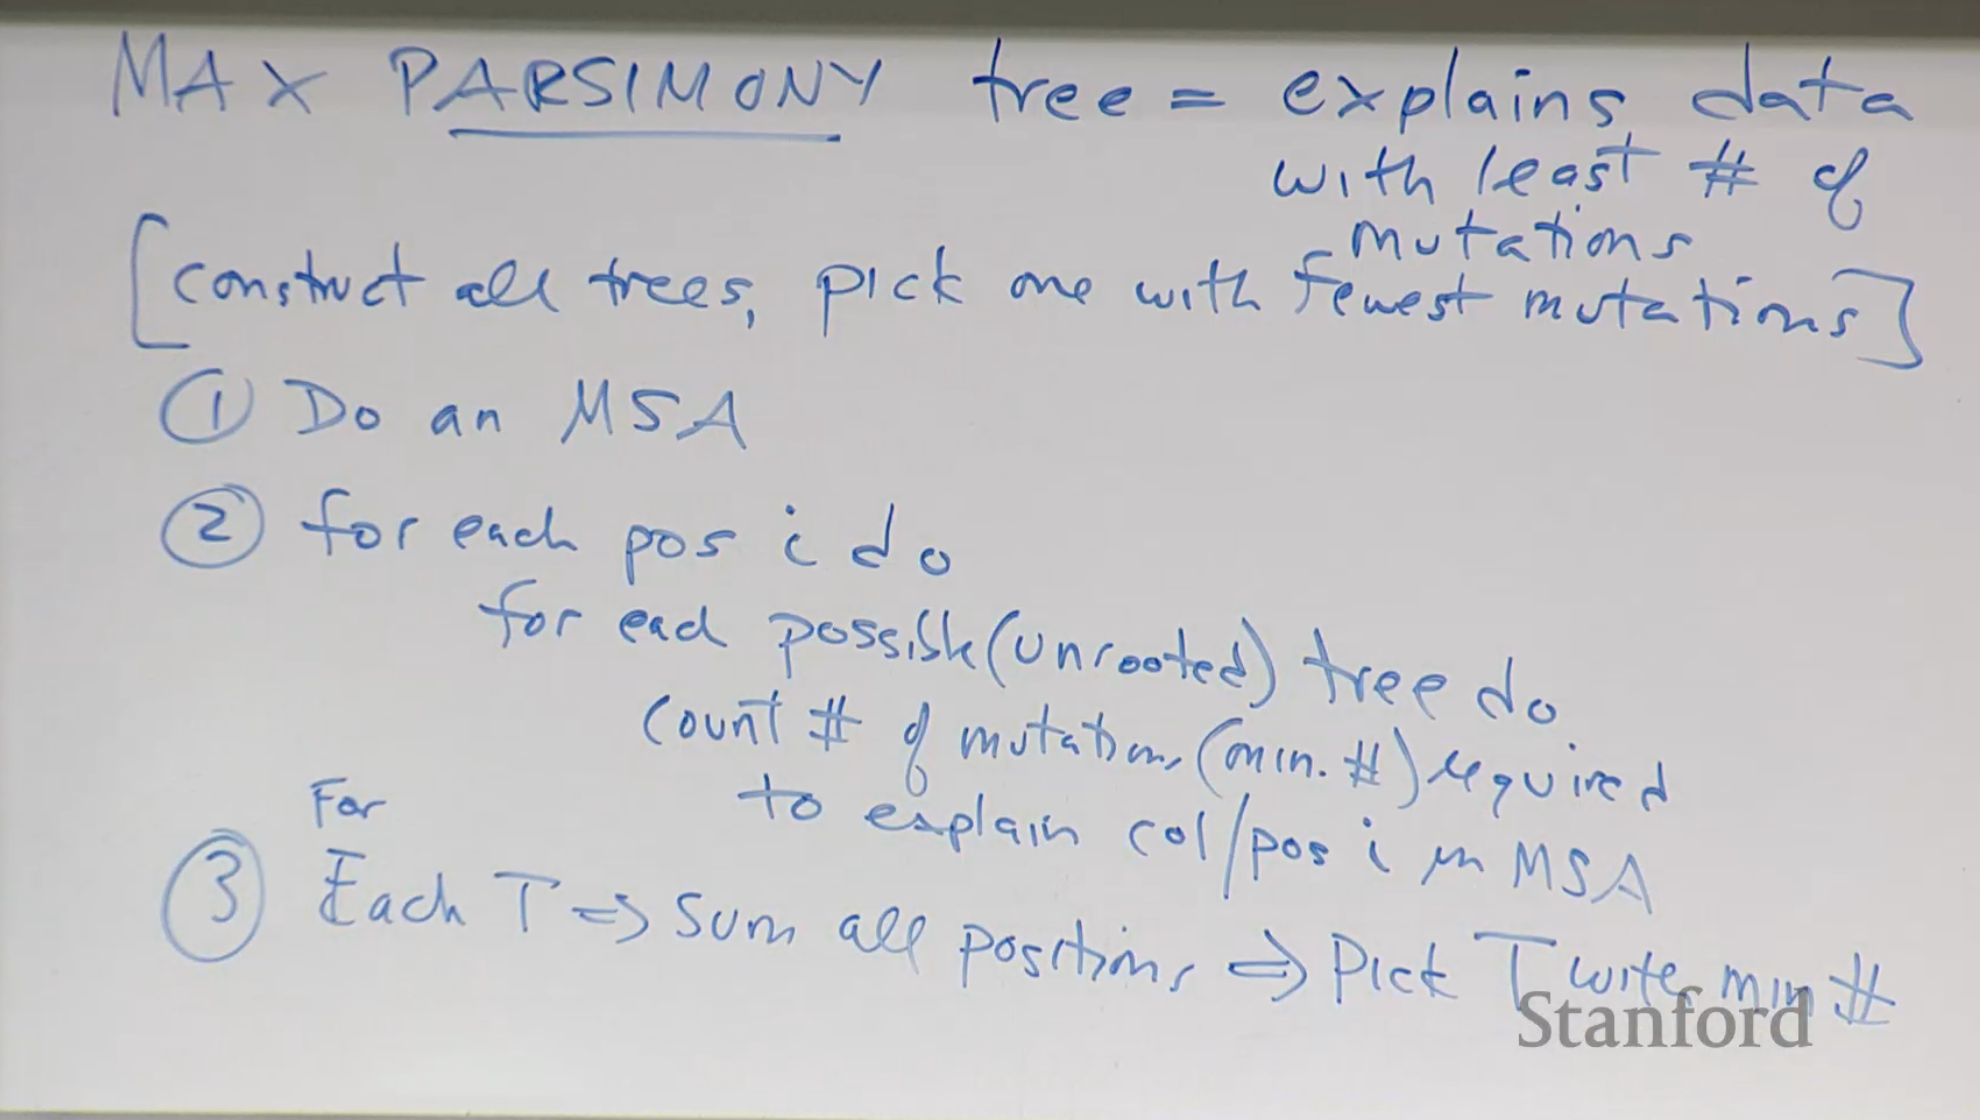 MAX PARSIMONY tree = explains data
with least # of
mutations
[construct all trees, pick one with fewest mutations]
① Do an MSA
② for each pos i do
for each possible (unrooted) tree do
count # of mutations (min. #) required
to explain col/pos i in MSA
For
③ Each T ⇒ Sum all positions ⇒ Pick T with min #
Stanford